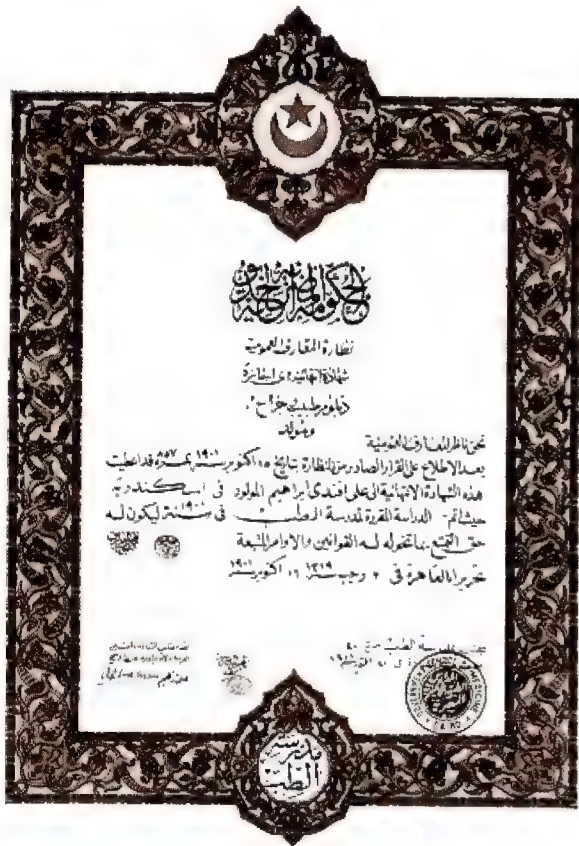 الحكومة المصرية الخديوية
نظارة المعارف العمومية
شهادة انتهائية
دبلوم طبيب جراح
ومولد
نحن ناظر المعارف العمومية
بعد الاطلاع على القرار الصادر من النظارة بتاريخ ١٥ اكتوبر سنة ١٩٠١ نمرة ٨٥٧ قد اعطيت
هذه الشهادة الانتهائية الى على افندى ابراهيم المولود فى اسكندرية
حيث اتم الدراسة المقررة لمدرسة الطب فى سنة ١٩٠١ ليكون له
حق التمتع بما تخوله له القوانين والاوامر المتبعة
تحريرا بالقاهرة فى ٢ رجب سنة ١٣١٩ ١٩ اكتوبر سنة ١٩٠١
مدرسة الطب
SCHOOL OF MEDICINE
مدرسة
الطب